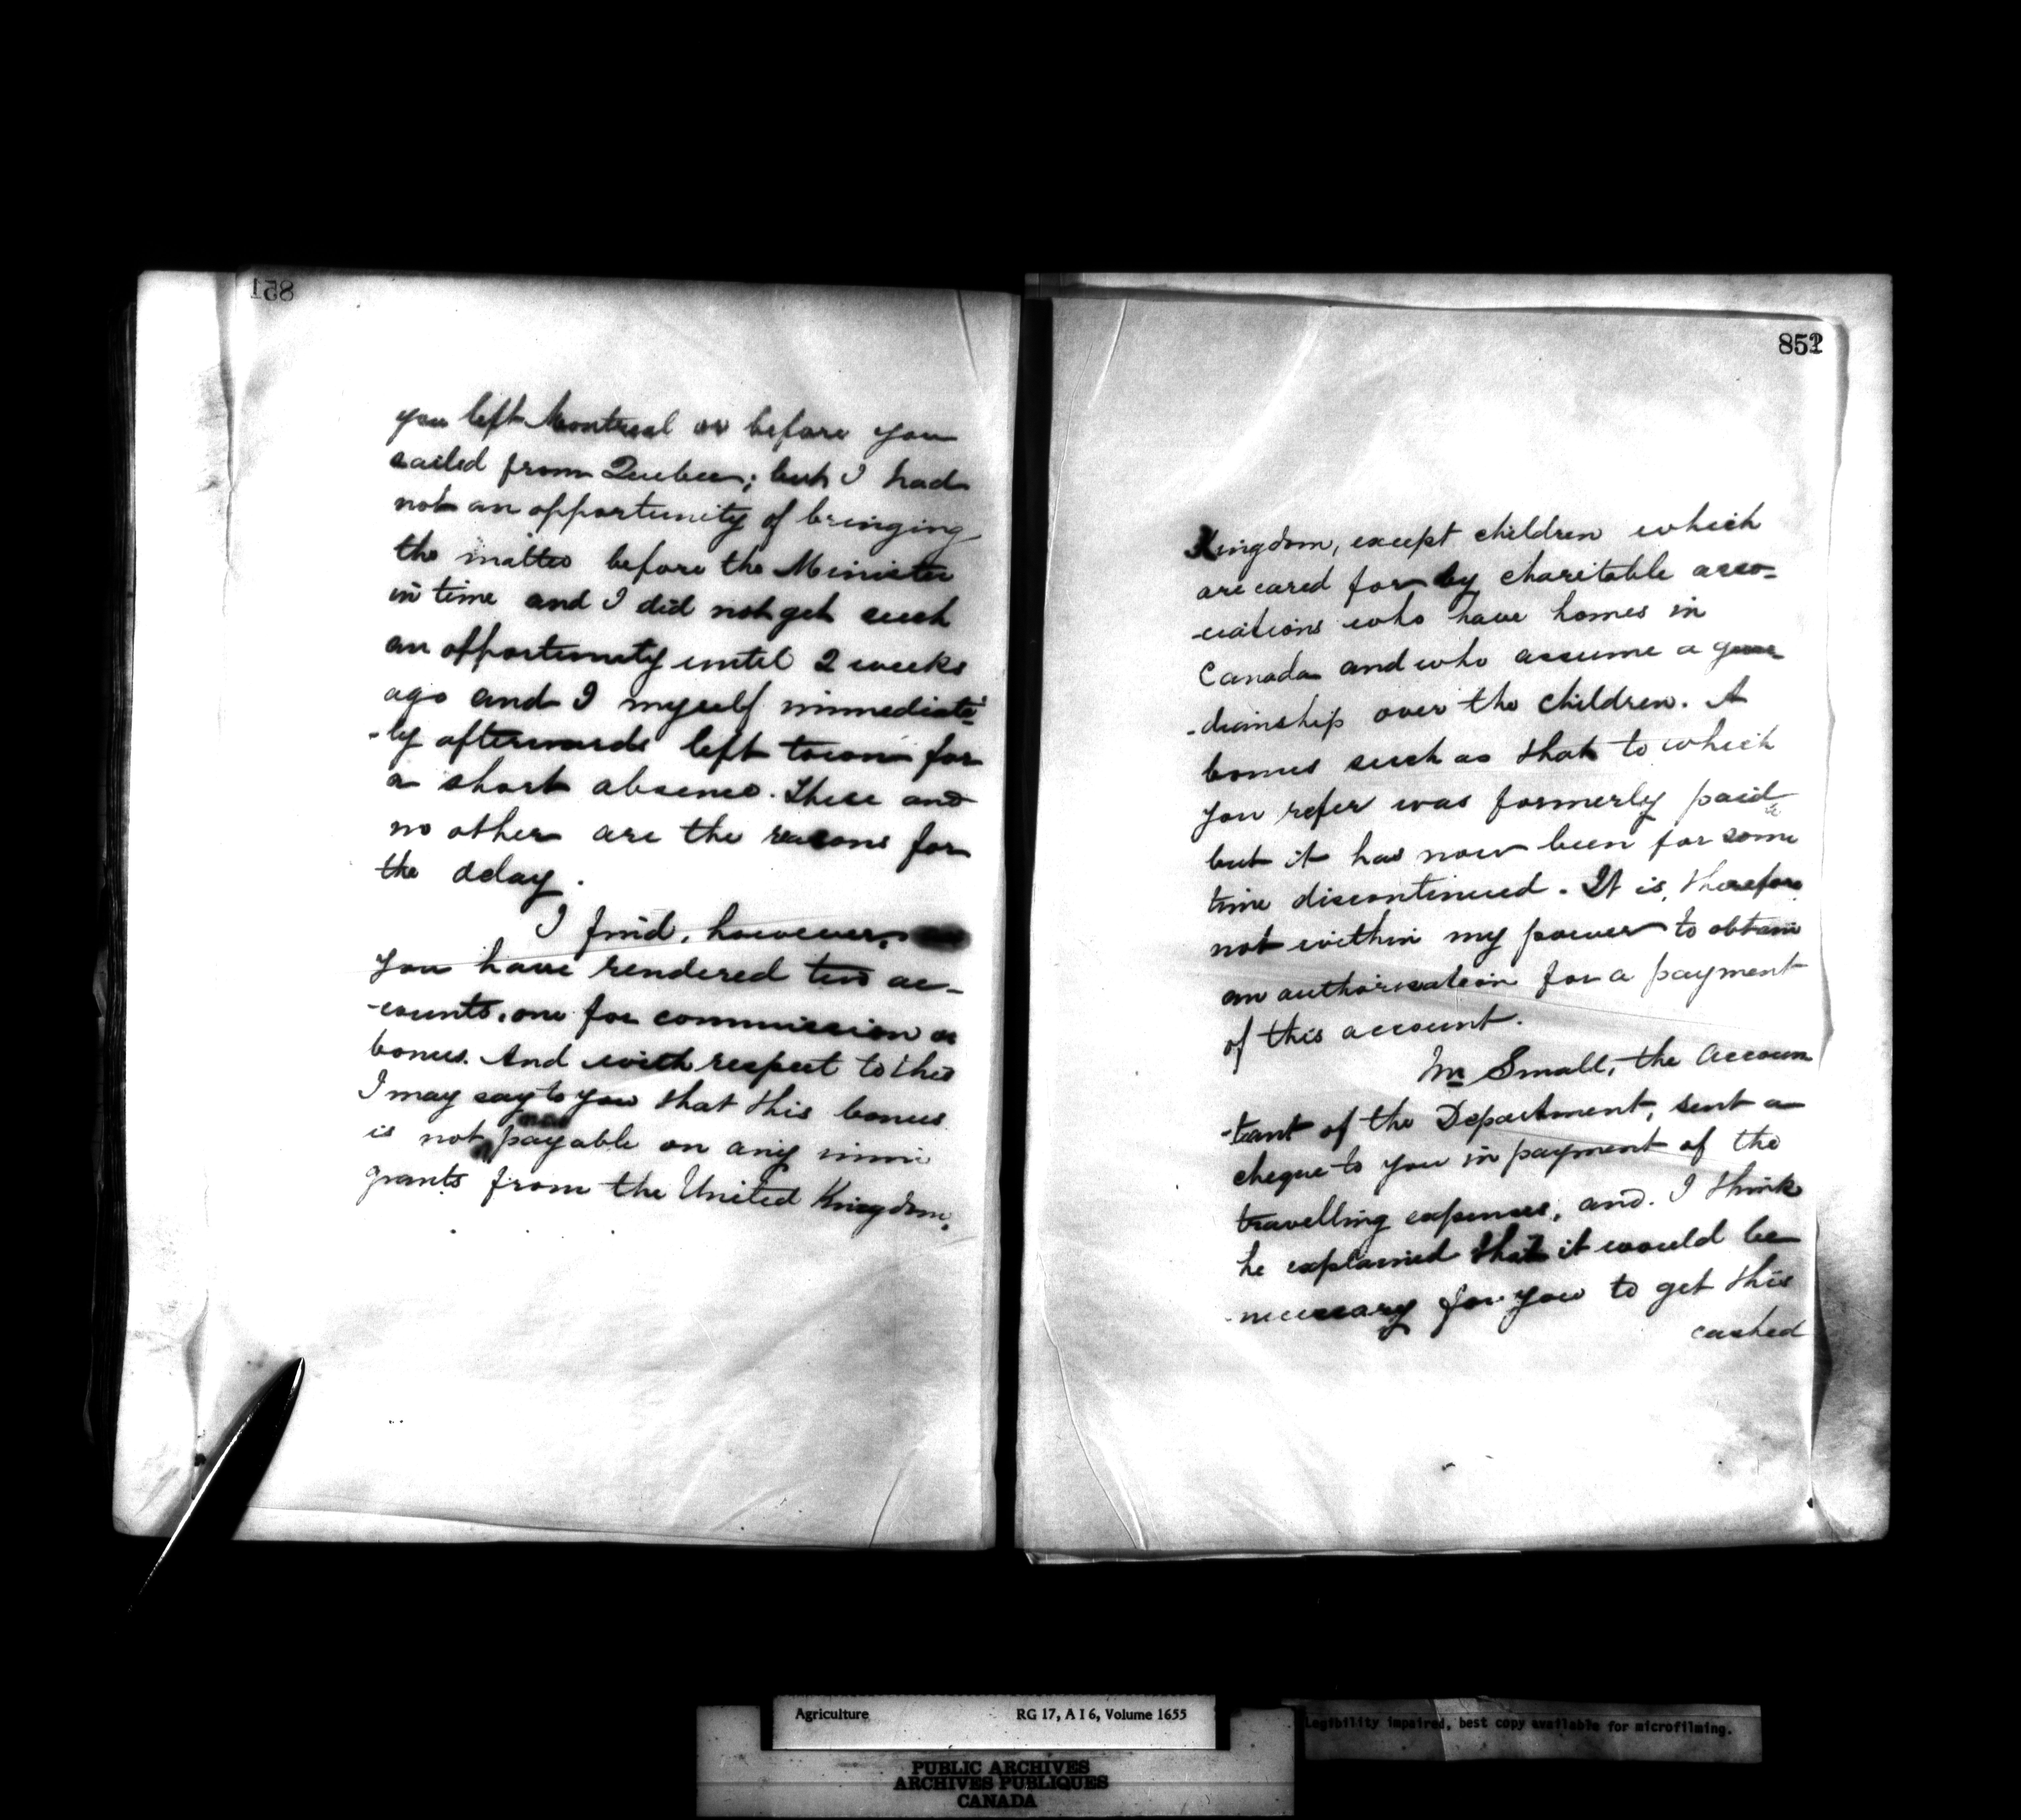 851
you left Montreal or before you
sailed from Quebec; but I had
not an opportunity of bringing
the matter before the Minister
in time and I did not get such
an opportunity until 2 weeks
ago and I myself immediate
-ly afterwards left town for
a short absence. These and
no other are the reasons for
the delay.
I find, however,
you have rendered two ac-
-counts, one for commission or
bonus. And with respect to this
I may say to you that this bonus
is not now payable on any immi
grants from the United Kingdom,
852
Kingdom, except children which
are cared for by charitable asso-
-ciations who have homes in
Canada and who assume a guar-
-dianship over the children. A
bonus such as that to which
you refer was formerly paid
but it has now been for some
time discontinued. It is, therefore
not within my power to obtain
an authorisation for a payment
of this account.
Mr Small, the Accoun
-tant of the Department, sent a
cheque to you in payment of the
travelling expenses, and I think
he explained that it would be
necessary for you to get this
cashed
Agriculture RG 17, A I 6, Volume 1655
Legibility impaired, best copy available for microfilming.
PUBLIC ARCHIVES
ARCHIVES PUBLIQUES
CANADA